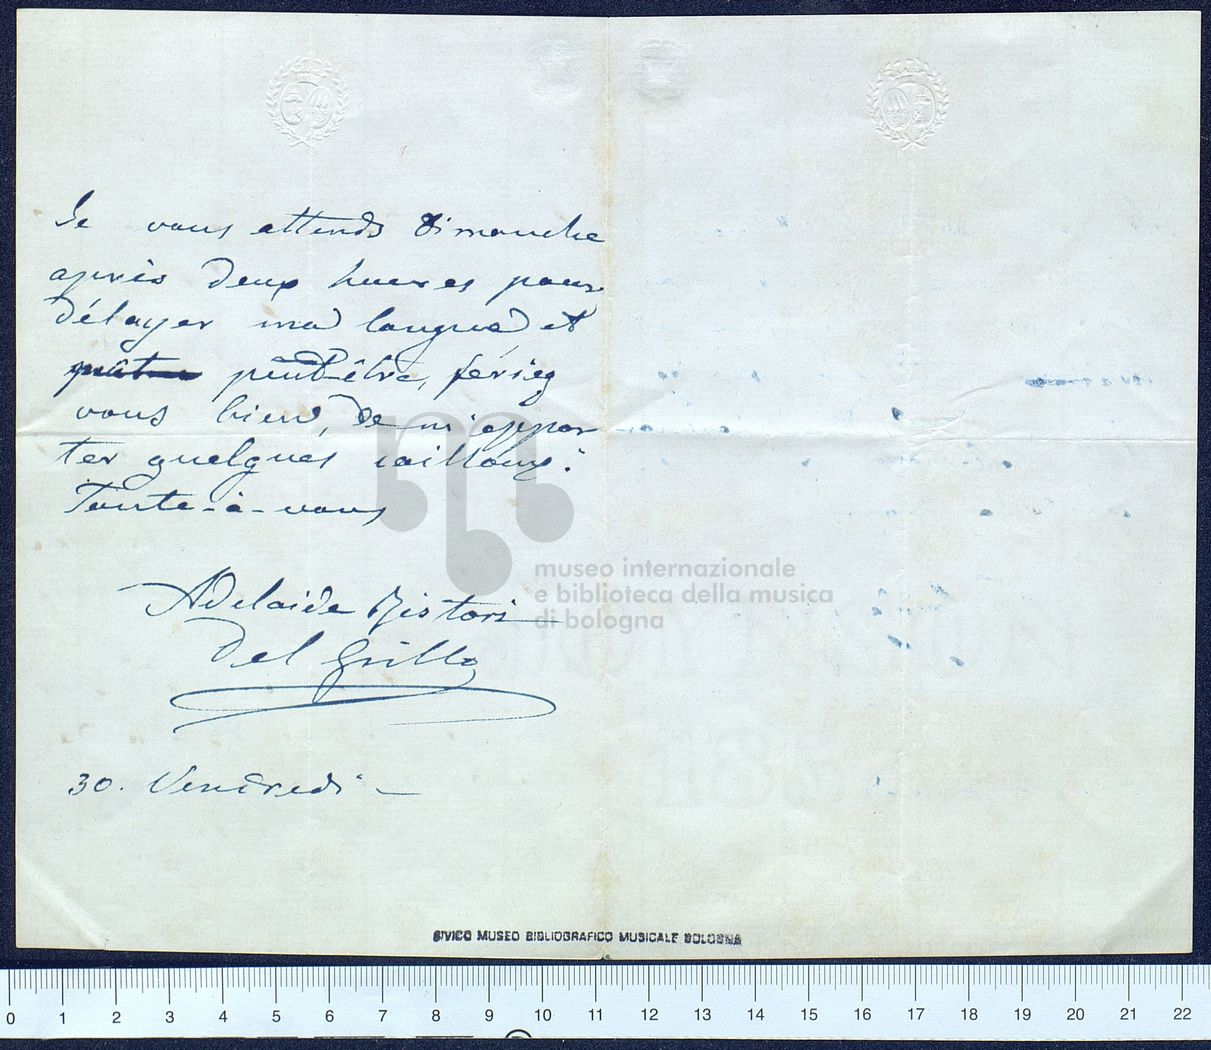 Je vous attends Dimanche
après deux heures pour
délayer ma langue et
peut-être, feriez
vous bien, de m'appor
ter quelques cailloux.
Toute-à-vous
Adelaide Ristori
Del Grillo
30. Vendredi -
museo internazionale
e biblioteca della musica
di bologna
CIVICO MUSEO BIBLIOGRAFICO MUSICALE BOLOGNA
0 1 2 3 4 5 6 7 8 9 10 11 12 13 14 15 16 17 18 19 20 21 22